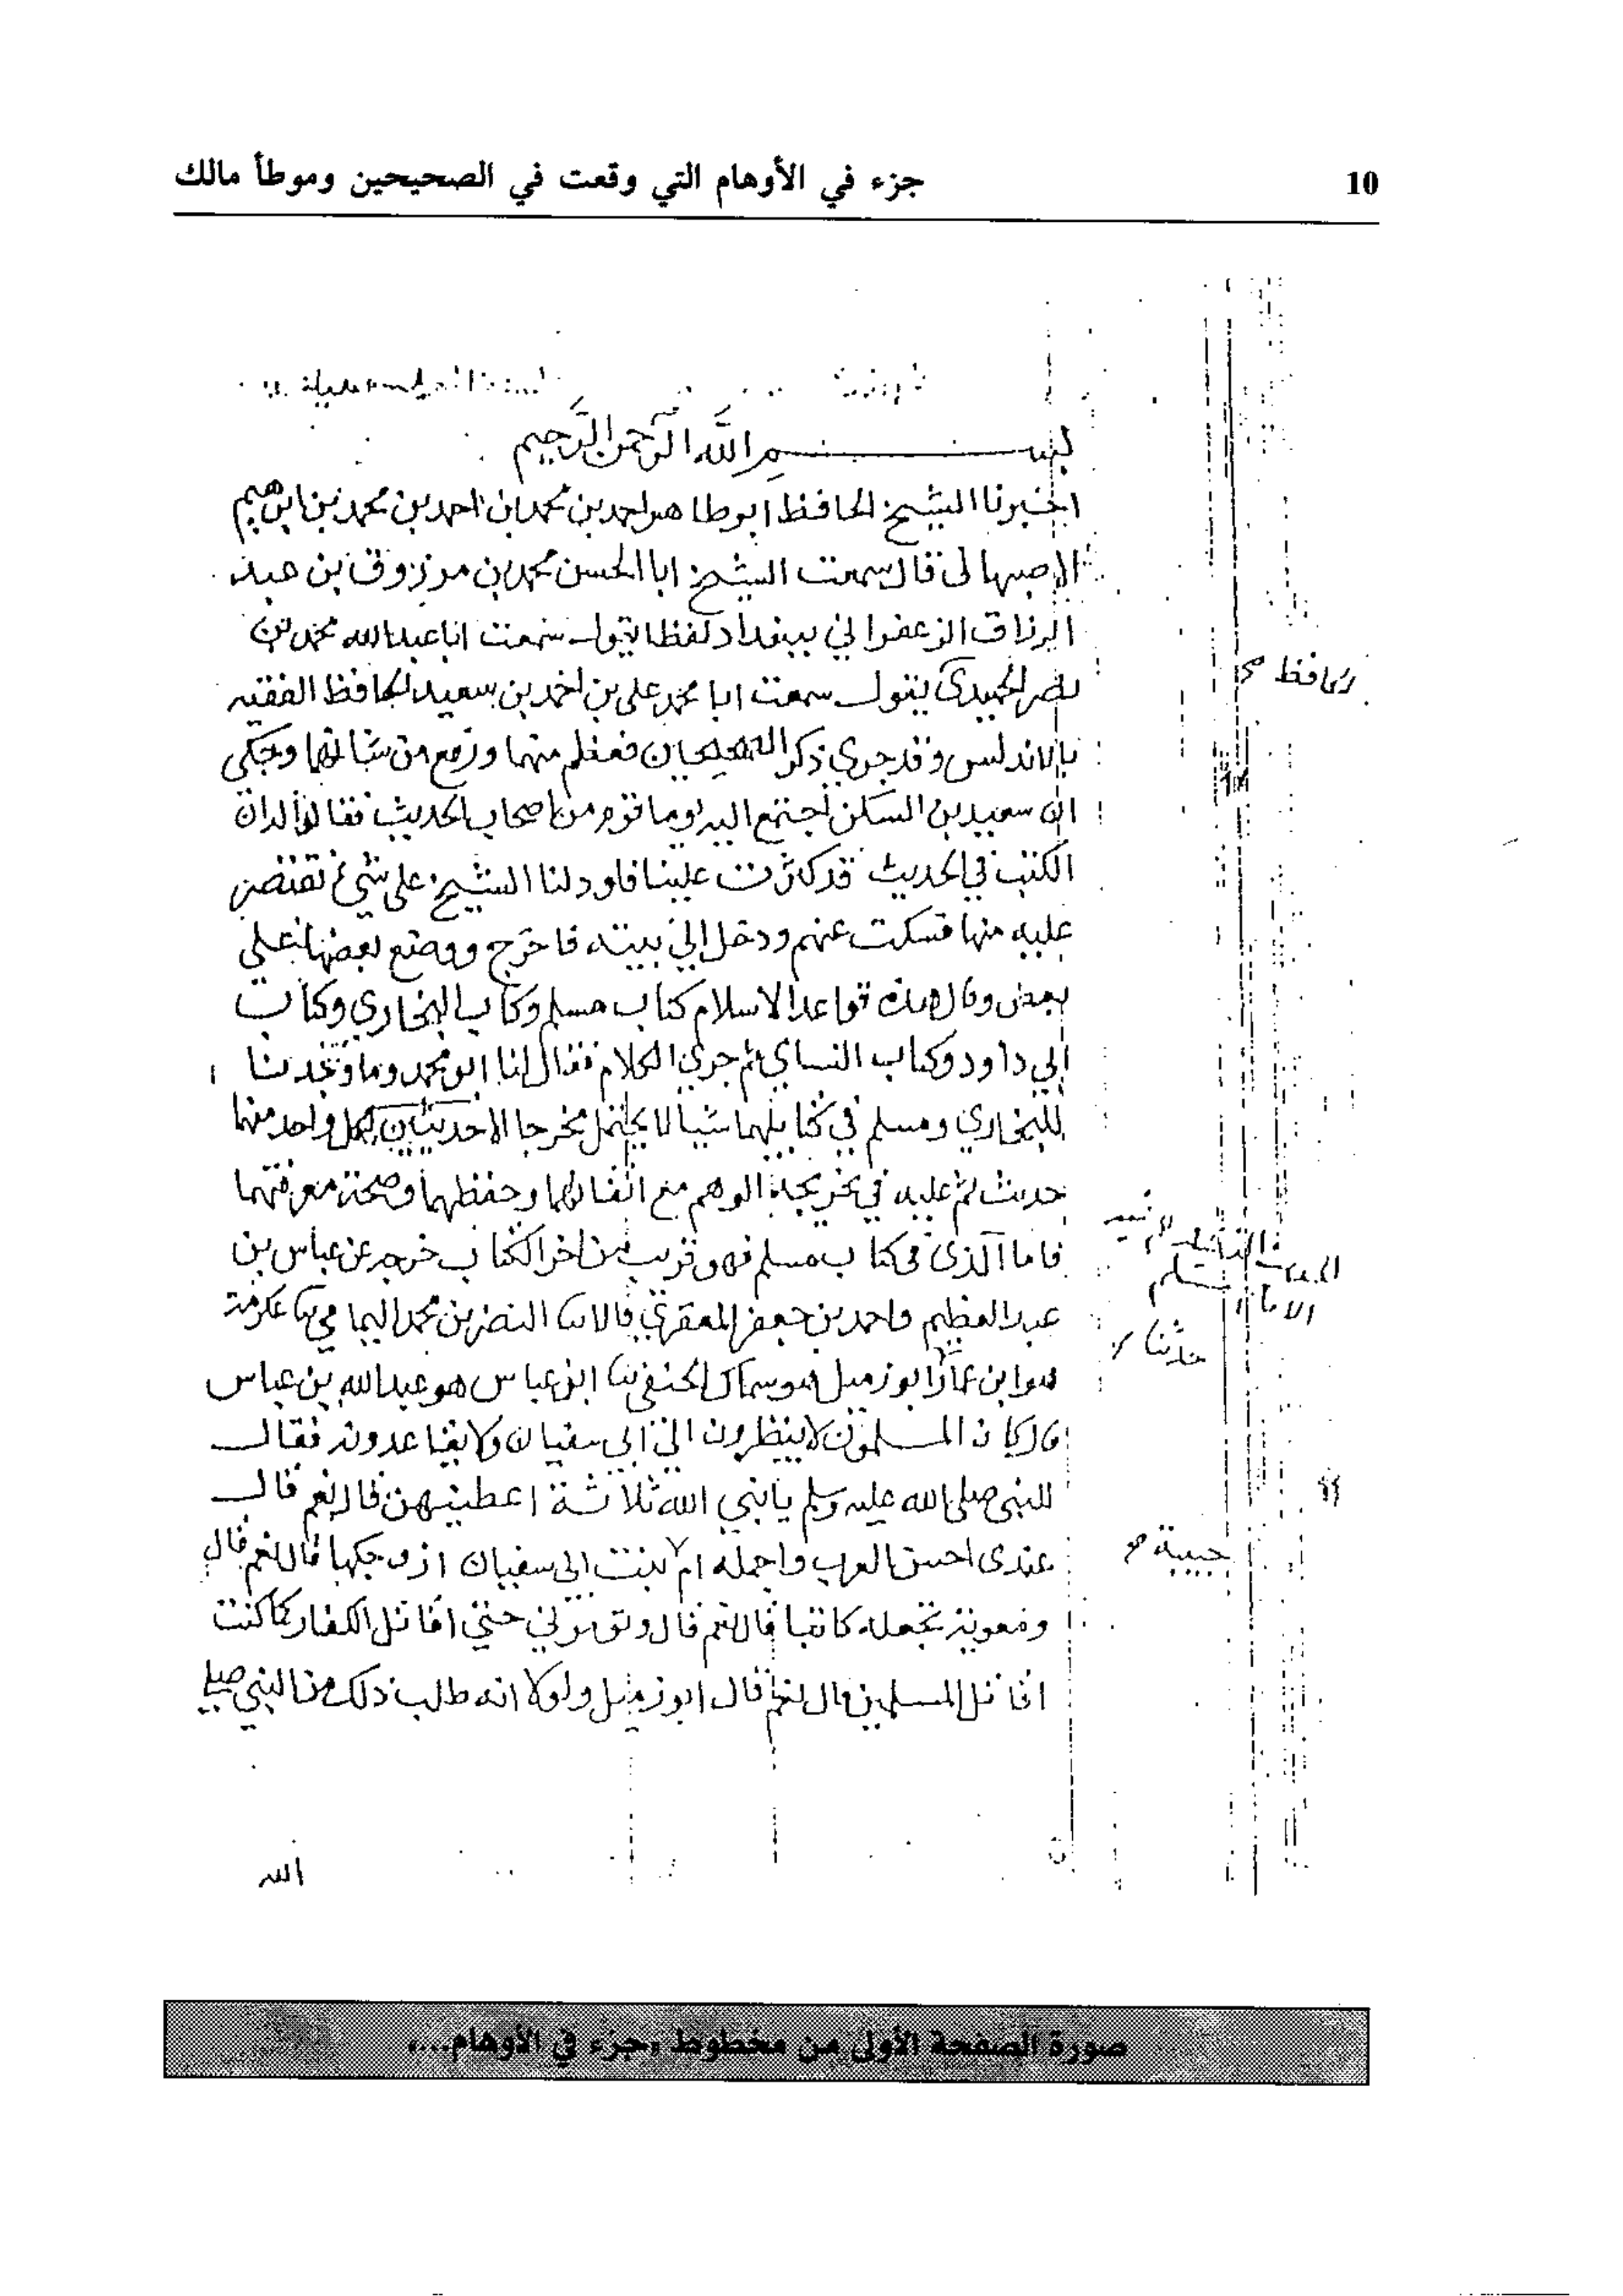 10
جزء في الأوهام التي وقعت في الصحيحين وموطأ مالك
بسم الله الرحمن الرحيم
اخبرنا الشيخ الحافظ ابو طاهر احمد بن محمد بن احمد بن محمد بن ابرهيم
الاصبهاني قال سمعت الشيخ ابا الحسن محمد بن مرزوق بن عبد
الرزاق الزعفراني ببغداد لفظا يقول سمعت ابا عبد الله محمد بن
نصر الحميدي يقول سمعت ابا محمد علي بن احمد بن سعيد الحافظ الفقيه
الحافظ صح
بالاندلس وقد جري ذكر الصحيحان فعظم منهما ورفع من شانهما وحكى
ان سعيد بن السكن اجتمع اليه يوما قوم من اصحاب الحديث فقالوا له ان
الكتب في الحديث قد كثرت علينا فلو دلنا الشيخ على شي نقتصر
عليه منها فسكت عنهم ودخل الي بيته فاخرج ووضع بعضها على
بعض وقال هذه قواعد الاسلام كتاب مسلم وكتاب البخاري وكتاب
ابي داود وكتاب النساي ثم جري الكلام فقال لنا ابو محمد وما وجدنا
للبخاري ومسلم في كتابيهما شيا لا يحتمل مخرجا الا حديثين لكل واحد منهما
حديث تم عليه في تخريجه الوهم مع اتقانهما وحفظهما وصحة معرفتهما
فاما الذي في كتاب مسلم فهو قريب من اخر الكتاب خرجه عن عباس بن
عبد العظيم واحمد بن جعفر المعقري قالا ثنا النضر بن محمد اليمامي ثنا عكرمة
حدثنا
هو ابن عمار ابو زميل هو سماك الحنفي ثنا ابن عباس هو عبد الله بن عباس
قال كان المسلمون لا ينظرون الي ابي سفيان ولا يقاعدونه فقال
للنبي صلى الله عليه وسلم يا نبي الله ثلاثة اعطنيهن قال نعم قال
عندى احسن العرب واجمله ام بنت ابي سفيان ازوجكها قال نعم قال
حبيبة صح
ومعوية تجعله كاتبا قال نعم قال وتومرني حتي اقاتل الكفار كما كنت
اقاتل المسلمين قال نعم قال ابو زميل ولولا انه طلب ذلك من النبي صلى
الله
صورة الصفحة الأولى من مخطوط «جزء في الأوهام...»